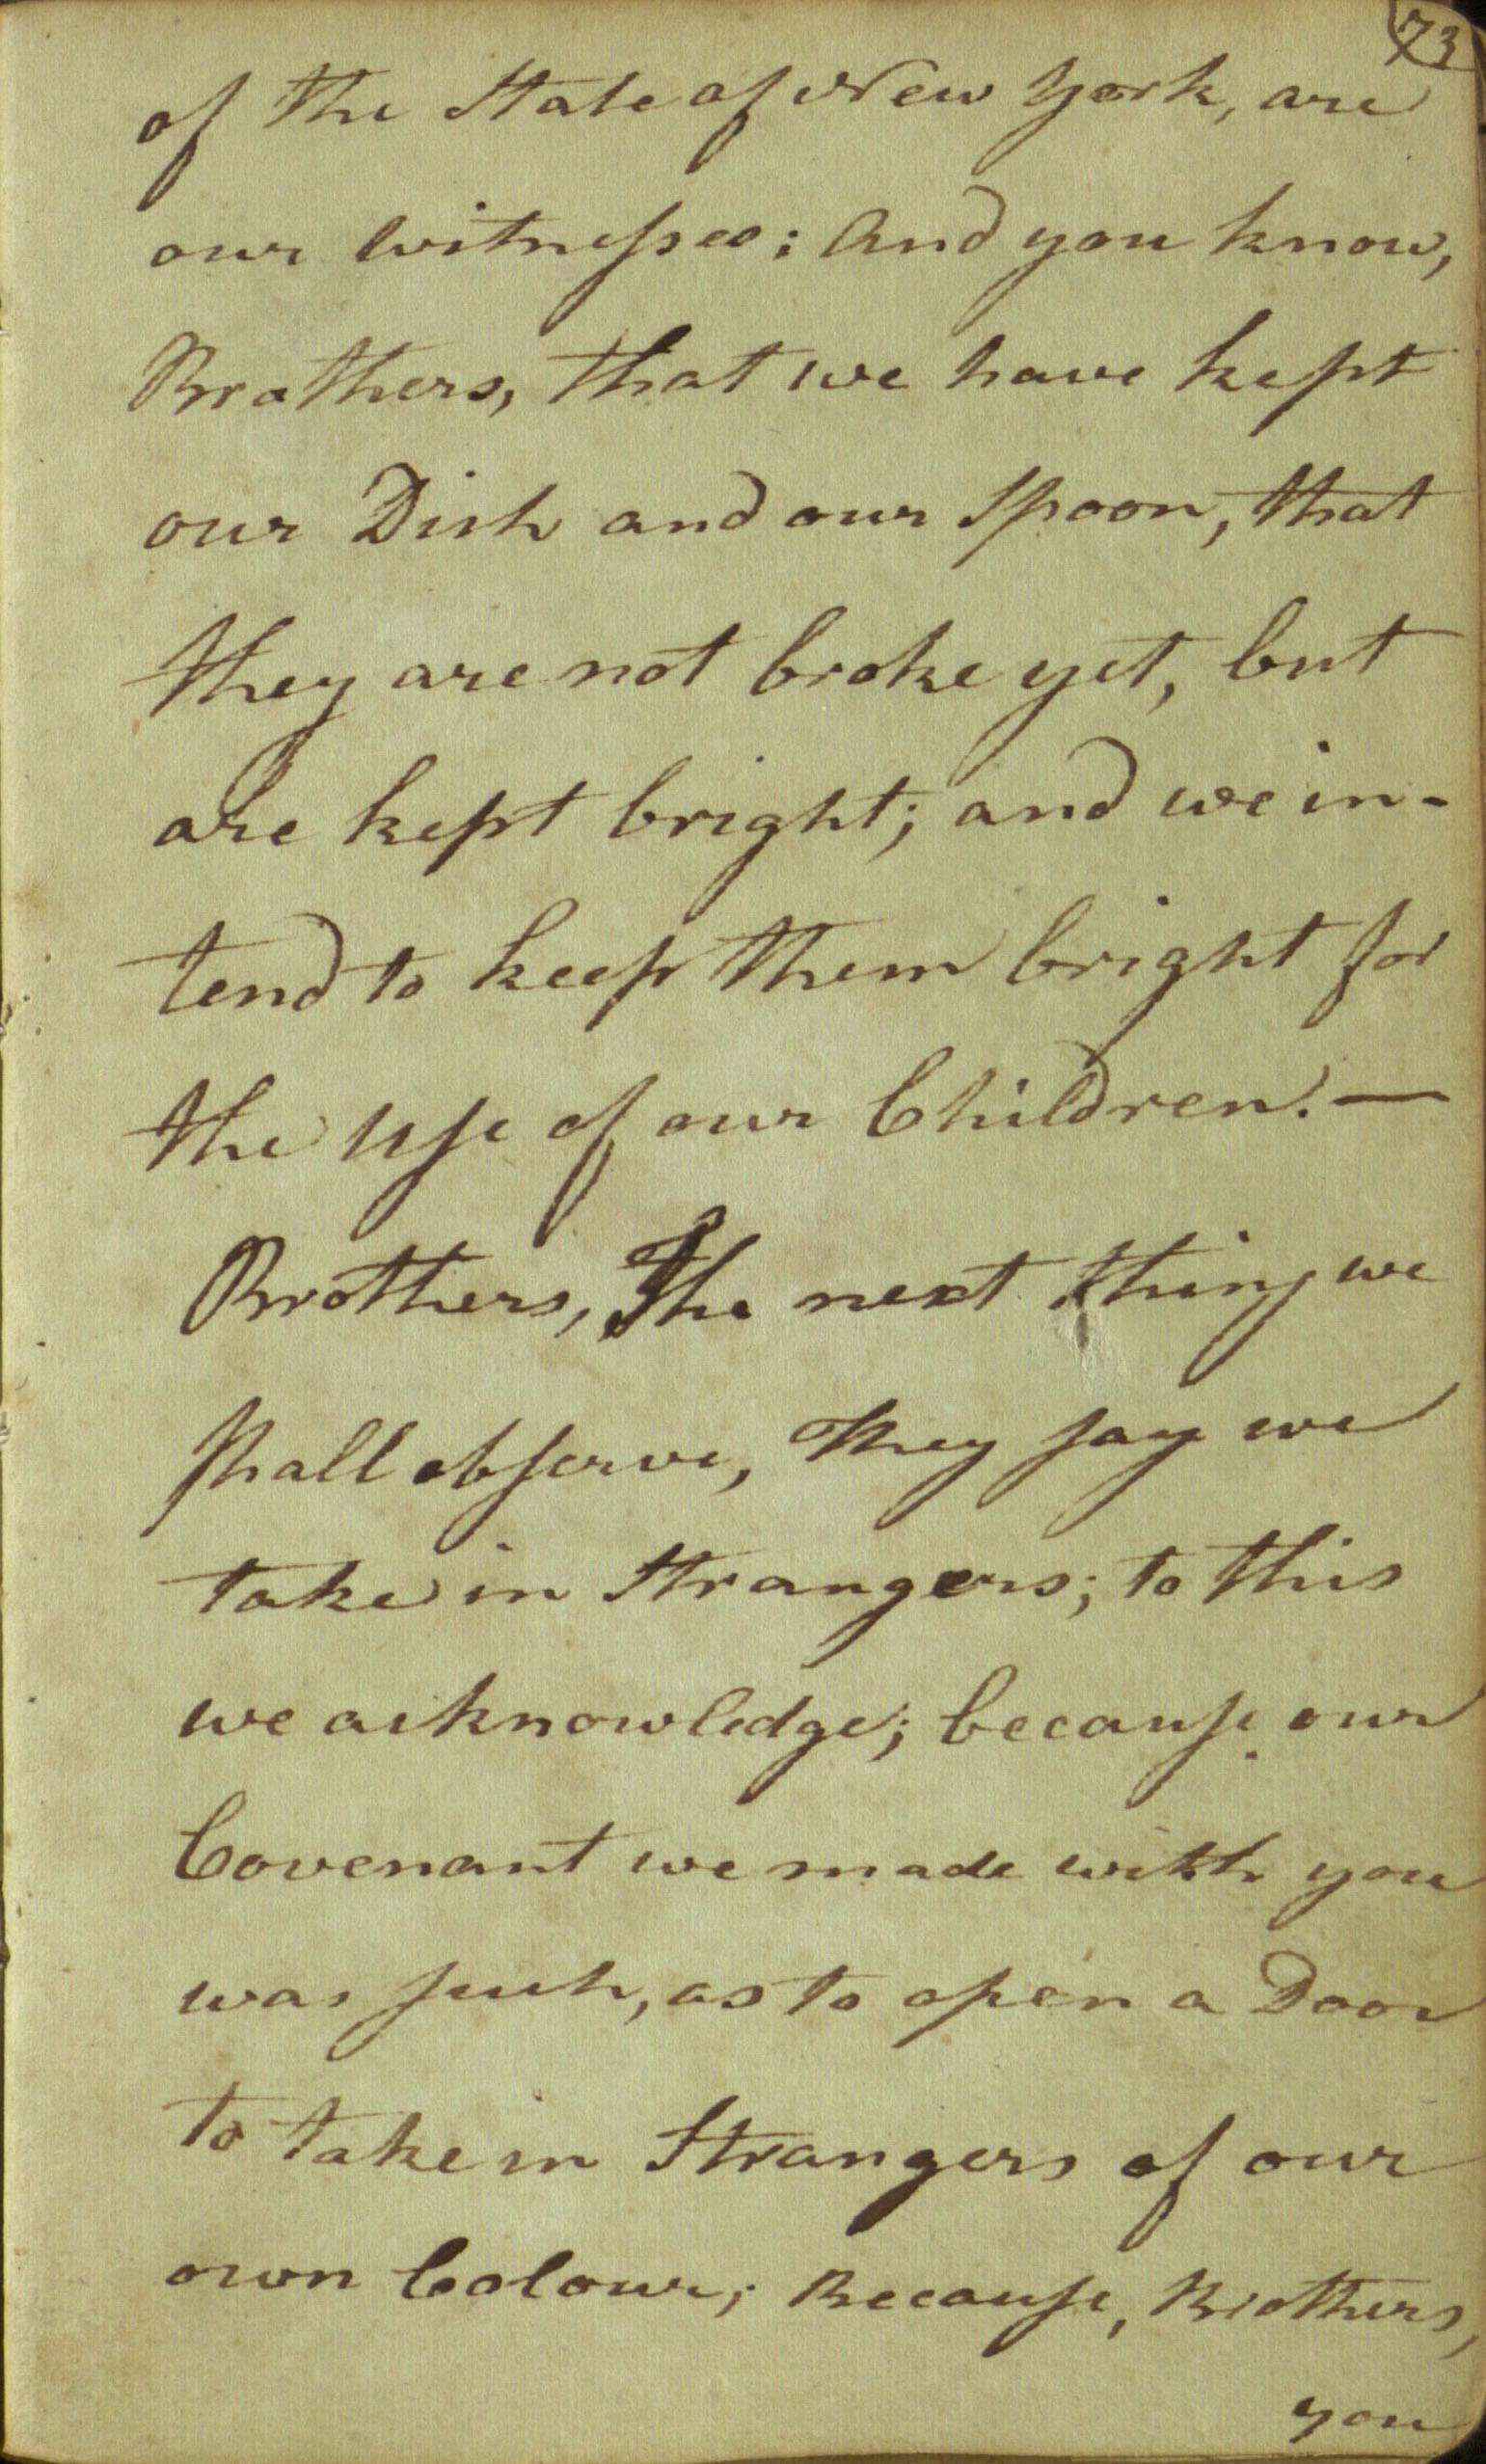 73
of the State of New York, are
our witnesses; And you know,
Brothers, that we have kept
our Dish and our Spoon, that
they are not broke yet, but
are kept bright; and we in-
tend to keep them bright for
the Use of our Children. —
Brothers, The next thing we
shall observe, They say we
take in Strangers; to this
we acknowledge; because our
Covenant we made with you
was such, as to open a Door
to take in Strangers of our
own Colour; Because, Brothers,
you